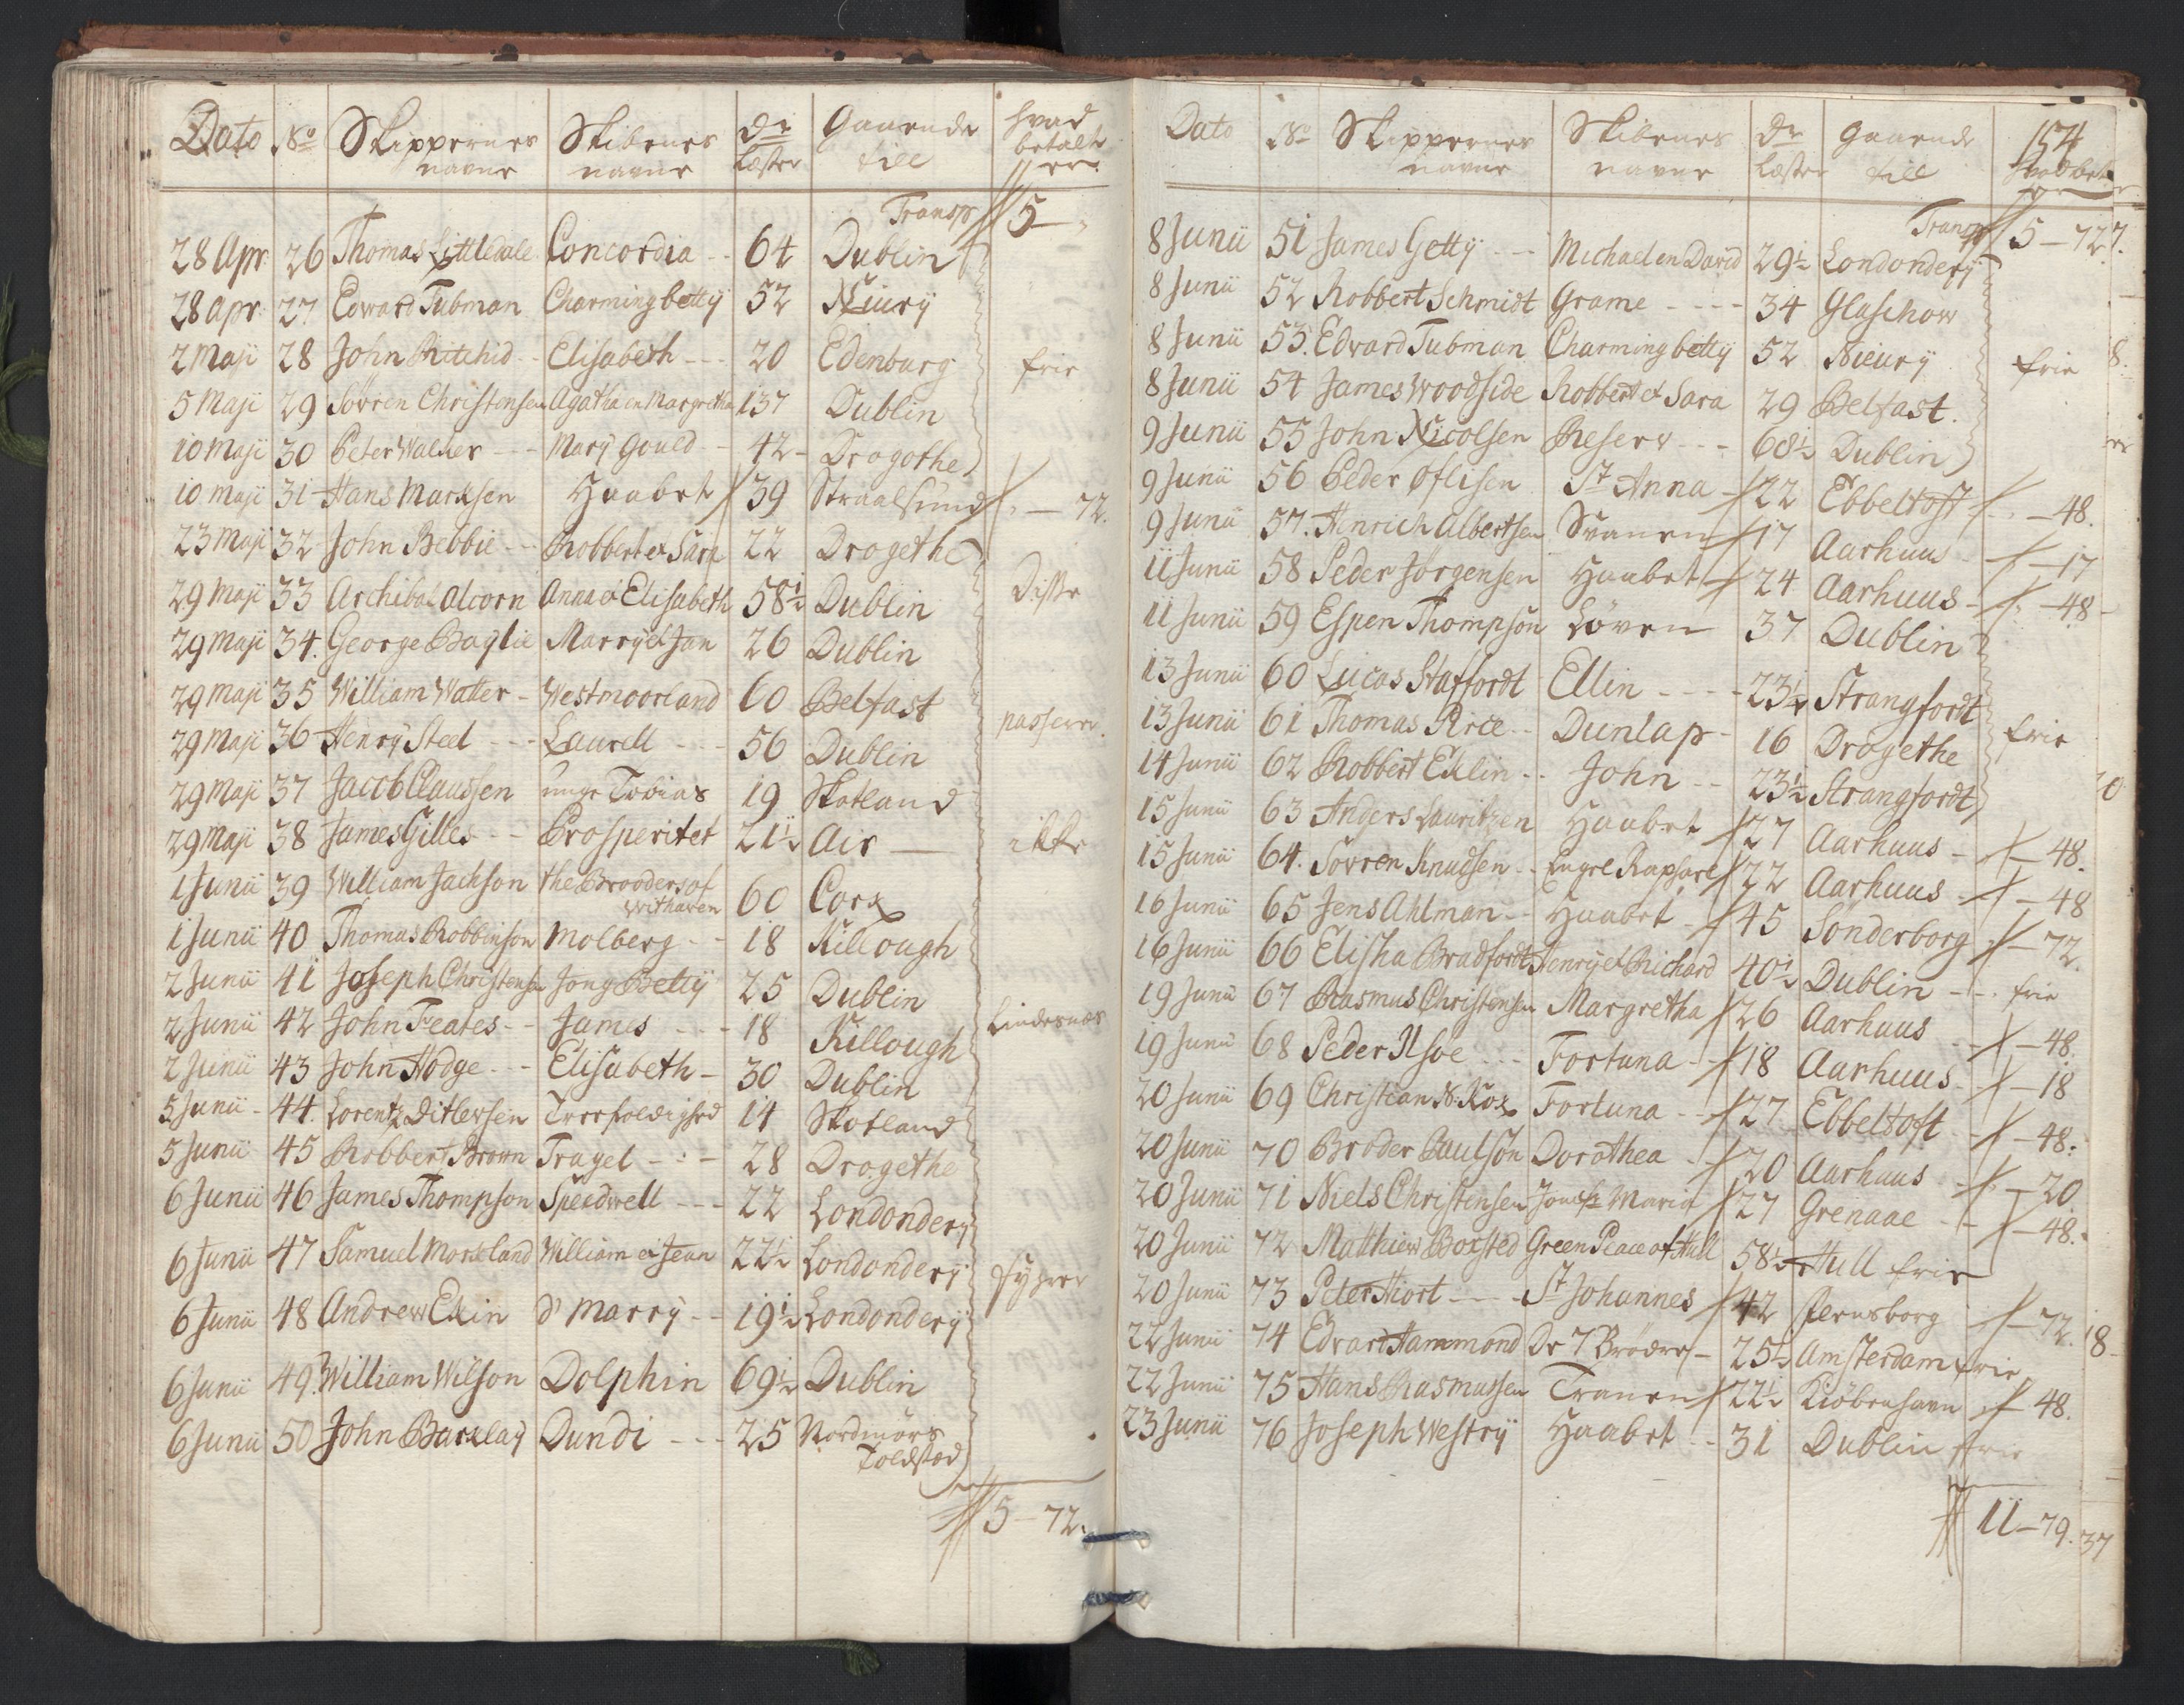 Dato No Skippernes navne Skibenes navne Dr Læster Gaaende till hvad betalt er
Transp 5 –
28 Apr 26 Thomas Littledale Concordia 64 Dublin
28 apr 27 Edward Tubman Charming betty 52 Niury
2 Maji 28 John Ritchid Elisabeth 20 Edenburg frie
5 Maji 29 Sövren Christensen Agatha en Margretha 137 Dublin
10 Maji 30 Peter Walker Mary Gould 42 Drogothe
10 Maji 31 Hans Marksen Haabet 39 Straalsund – 72.
23 Maji 32 John Bebbie Robbert et Sara 22 Drogethe
29 Maji 33 Archibal Alcorn Anna et Elisabeth 58½ Dublin Disse
29 Maji 34. George Baylie Marry et Jan 26 Dublin
29 Maji 35 William Watter Westmoorland 60 Belfast passerer
29 Maji 36 Henry Steel Laurell 56 Dublin
29 Maji 37 Jacob Claussen unge Tobias 19 Skotland
29 Maji 38 James Gilles Prosperitet 21½ Air ikke
1 Junii 39 William Jackson the Brooders of Withaven 60 Cork
1 Junii 40 Thomas Robbinson Molberg 18 Killough
2 Junii 41 Joseph Christensen Jong Betty 25 Dublin
2 Junii 42 John Feates James 18 Killough Lindesnæs
2 Junii 43 John Hodge Elisabeth 30 Dublin
5 Junii 44. Lorentz Ditlevsen Treefoldighed 14 Skotland
5 Junii 45 Robbert Brown Tragel 28 Drogethe
6 Junii 46 James Thompson Speedwell 22 Londondery
6 Junii 47 Samuel Moreland William et Jean 22½ Londondery
6 Junii 48 Andrew Ekin d' Marry 19½ Londondery
6 Junii 49 William Wilson Dolphin 69½ Dublin
6 Junii 50 John Barklay Dundi 25 Nordmörs Toldsted
5 – 72.
154
Dato No Skippernes navne Skibenes navne Dr Læster gaaende till
Transp 5 – 72
8 Junii 51 James Getty Michael en David 29½ Londondery
8 Junii 52 Robbert Schmidt Grame 34 Glaschow
8 Junii 53. Edvard Tubman Charming betty 52 Nieury frie
8 Junii 54 James Woodside Robbert et Sara 29 Belfast.
9 Junii 55 John Nicolsen Reserv 68½ Dublin
9 Junii 56 Peder Oflisen St Anna 22 Ebbeltoft – 48.
9 Junii 57. Henrich Albertsen Svanen 17 Aarhuus – 17
11 Junii 58 Peder Jörgensen Haabet 24 Aarhuus – 48
11 Junii 59 Espen Thompsön Löven 37 Dublin
13 Junii 60 Lucas Staffordt Ellin 23½ Strangfordt
13 Junii 61 Thomas Price Dunlap 16 Drogethe frie
14 Junii 62 Robbert Eklin John 23½ Strangfordt
15 Junii 63 Anders Lauritzen Haabet 27 Aarhuus – 48.
15 Junii 64. Sövren Knudsen Engel Raphael 22 Aarhuus – 48
16 Junii 65 Jens Ahlman Haabet 45 Sönderborg – 72.
16 Junii 66 Elisha Bradfordt Henry et Richard 40½ Dublin frie
19 Junii 67 Rasmus Christensen Margretha 26 Aarhuus – 48.
19 Junii 68 Peder Ilsöe Fortuna 18 Aarhuus – 18
20 Junii 69 Christian N. Kox Fortuna 27 Ebbeltoft – 48.
20 Junii 70 Broder Paulsön Dorothea 20 Aarhuus – 20
20 Junii 71 Niels Christensen Jomfr Maria 27 Grenaae – 48.
20 Junii 72 Matthiew Boxsted Green Peace of Hull 58½ Hull frie
20 Junii 73 Peter Hiort St Johannes 42 – 72.
22 Junii 74 Edvart Hammond De 7 Brödre 25½ Amsterdam frie
22 Junii 75 Hans Rasmussen Tranen 22½ Kiöbenhavn 48.
23 Junii 76 Joseph Westry Haabet 31 Dublin frie
11 – 79.